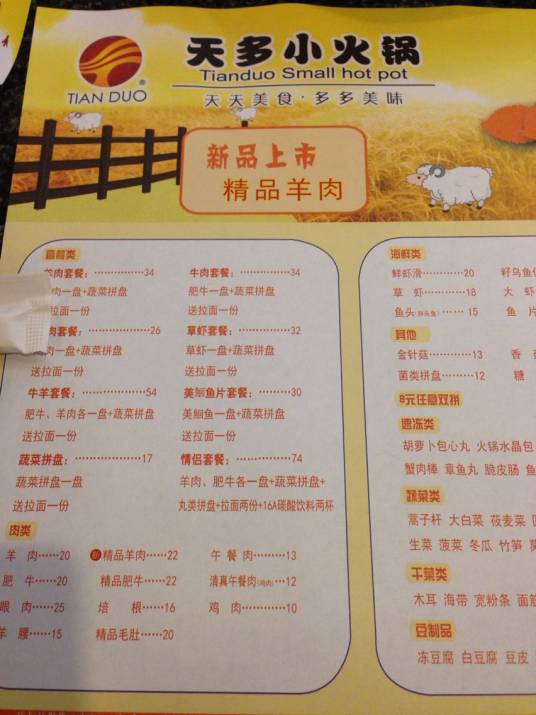 天多小火锅
Tianduo Small hot pot
TIAN DUO
®
天天美食·多多美味
新品上市
精品羊肉
套餐类
羊肉套餐：……………34
肉一盘+蔬菜拼盘
送拉面一份
肉套餐：……………26
肉一盘+蔬菜拼盘
送拉面一份
牛羊套餐：…………54
肥牛、羊肉各一盘+蔬菜拼盘
送拉面一份
蔬菜拼盘：…………17
蔬菜拼盘一盘
送拉面一份
牛肉套餐：……………34
肥牛一盘+蔬菜拼盘
送拉面一份
草虾套餐：……………32
草虾一盘+蔬菜拼盘
送拉面一份
美鮰鱼片套餐：………30
美鮰鱼一盘+蔬菜拼盘
送拉面一份
情侣套餐：……………74
羊肉、肥牛各一盘+蔬菜拼盘+
丸类拼盘+拉面两份+16A碳酸饮料两杯
肉类
羊 肉……20
新 精品羊肉……22
午 餐 肉………13
肥 牛……20
精品肥牛……22
清真午餐肉(鸡肉)…12
眼 肉……25
培 根……16
鸡 肉…………10
羊 腰……15
精品毛肚……20
海鲜类
鲜虾滑…………20 籽乌鱼
草 虾…………18 大 虾
鱼头(胖头鱼)……15 鱼 片
其他
金针菇…………13 香
菌类拼盘………12 糖
B元任意双拼
速冻类
胡萝卜包心丸 火锅水晶包
蟹肉棒 章鱼丸 脆皮肠 鱼
蔬菜类
蒿子杆 大白菜 莜麦菜
生菜 菠菜 冬瓜 竹笋
干菜类
木耳 海带 宽粉条 面筋
豆制品
冻豆腐 白豆腐 豆皮